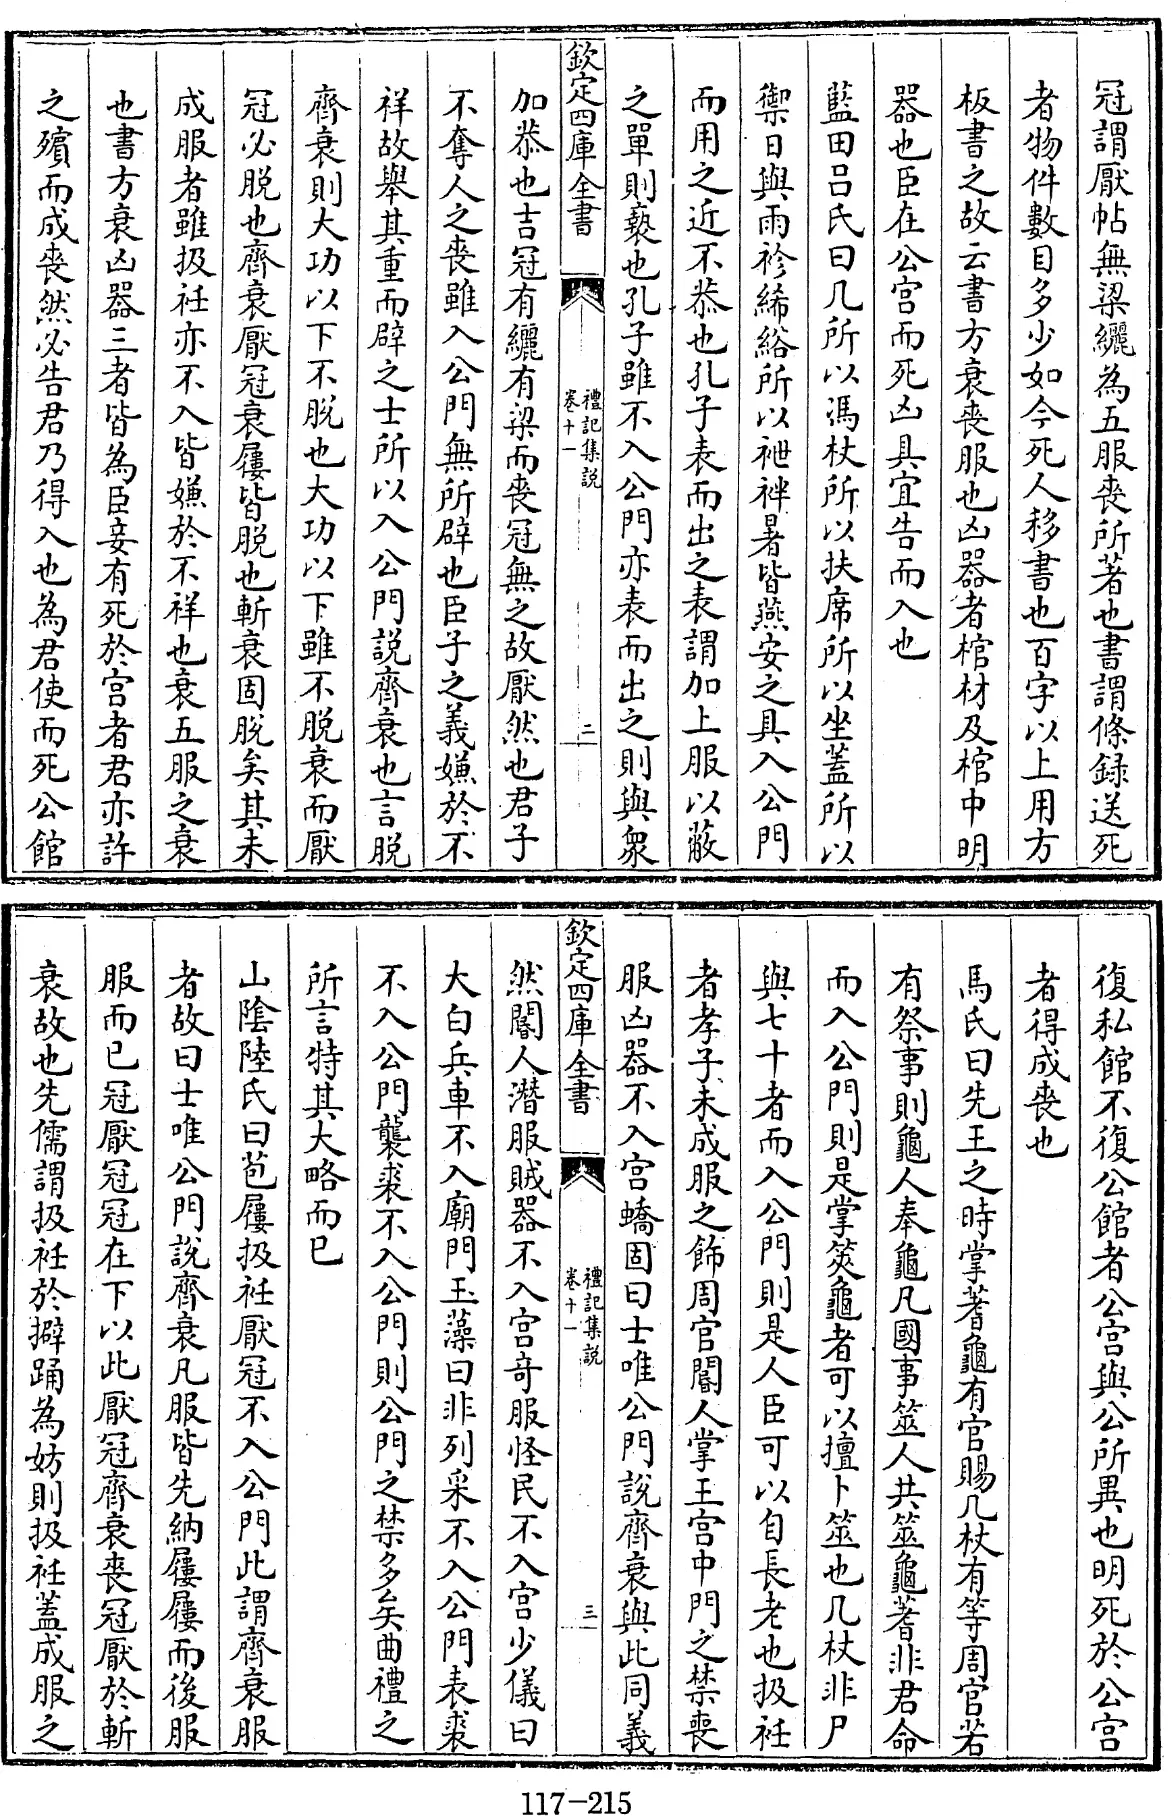 冠謂厭帖無梁纚為五服喪所著也書謂條録送死
者物件數目多少如今死人移書也百字以上用方
板書之故云書方衰喪服也凶器者棺材及棺中明
器也臣在公宫而死凶具宜告而入也
藍田呂氏曰几所以馮杖所以扶席所以坐蓋所以
禦日與雨袗絺綌所以袣袢暑皆燕安之具入公門
而用之近不恭也孔子表而出之表謂加上服以蔽
之單則褻也孔子雖不入公門亦表而出之則與衆
欽定四庫全書
禮記集説
卷十一
二
加恭也吉冠有纚有梁而喪冠無之故厭然也君子
不奪人之喪雖入公門無所辟也臣子之義嫌於不
祥故舉其重而辟之士所以入公門説齊衰也言脱
齊衰則大功以下不脱也大功以下雖不脱衰而厭
冠必脱也齊衰厭冠衰屨皆脱也斬衰固脱矣其未
成服者雖扱衽亦不入皆嫌於不祥也衰五服之衰
也書方衰凶器三者皆為臣妾有死於宫者君亦許
之殯而成喪然必告君乃得入也為君使而死公館
復私館不復公館者公宫與公所異也明死於公宫
者得成喪也
馬氏曰先王之時掌蓍龜有官賜几杖有等周官若
有祭事則龜人奉龜凡國事筮人共筮龜蓍非君命
而入公門則是掌筴龜者可以擅卜筮也几杖非尸
與七十者而入公門則是人臣可以自長老也扱衽
者孝子未成服之飾周官閽人掌王宫中門之禁喪
服凶器不入宫蟜固曰士唯公門説齊衰與此同義
欽定四庫全書
禮記集説
卷十一
三
然閽人潛服賊器不入宫竒服怪民不入宫少儀曰
大白兵車不入廟門玉藻曰非列采不入公門表裘
不入公門襲裘不入公門則公門之禁多矣曲禮之
所言特其大略而已
山陰陸氏曰苞屨扱衽厭冠不入公門此謂齊衰服
者故曰士唯公門説齊衰凡服皆先納屨屨而後服
服而已冠厭冠冠在下以此厭冠齊衰喪冠厭於斬
衰故也先儒謂扱衽於擗踊為妨則扱衽蓋成服之
117-215